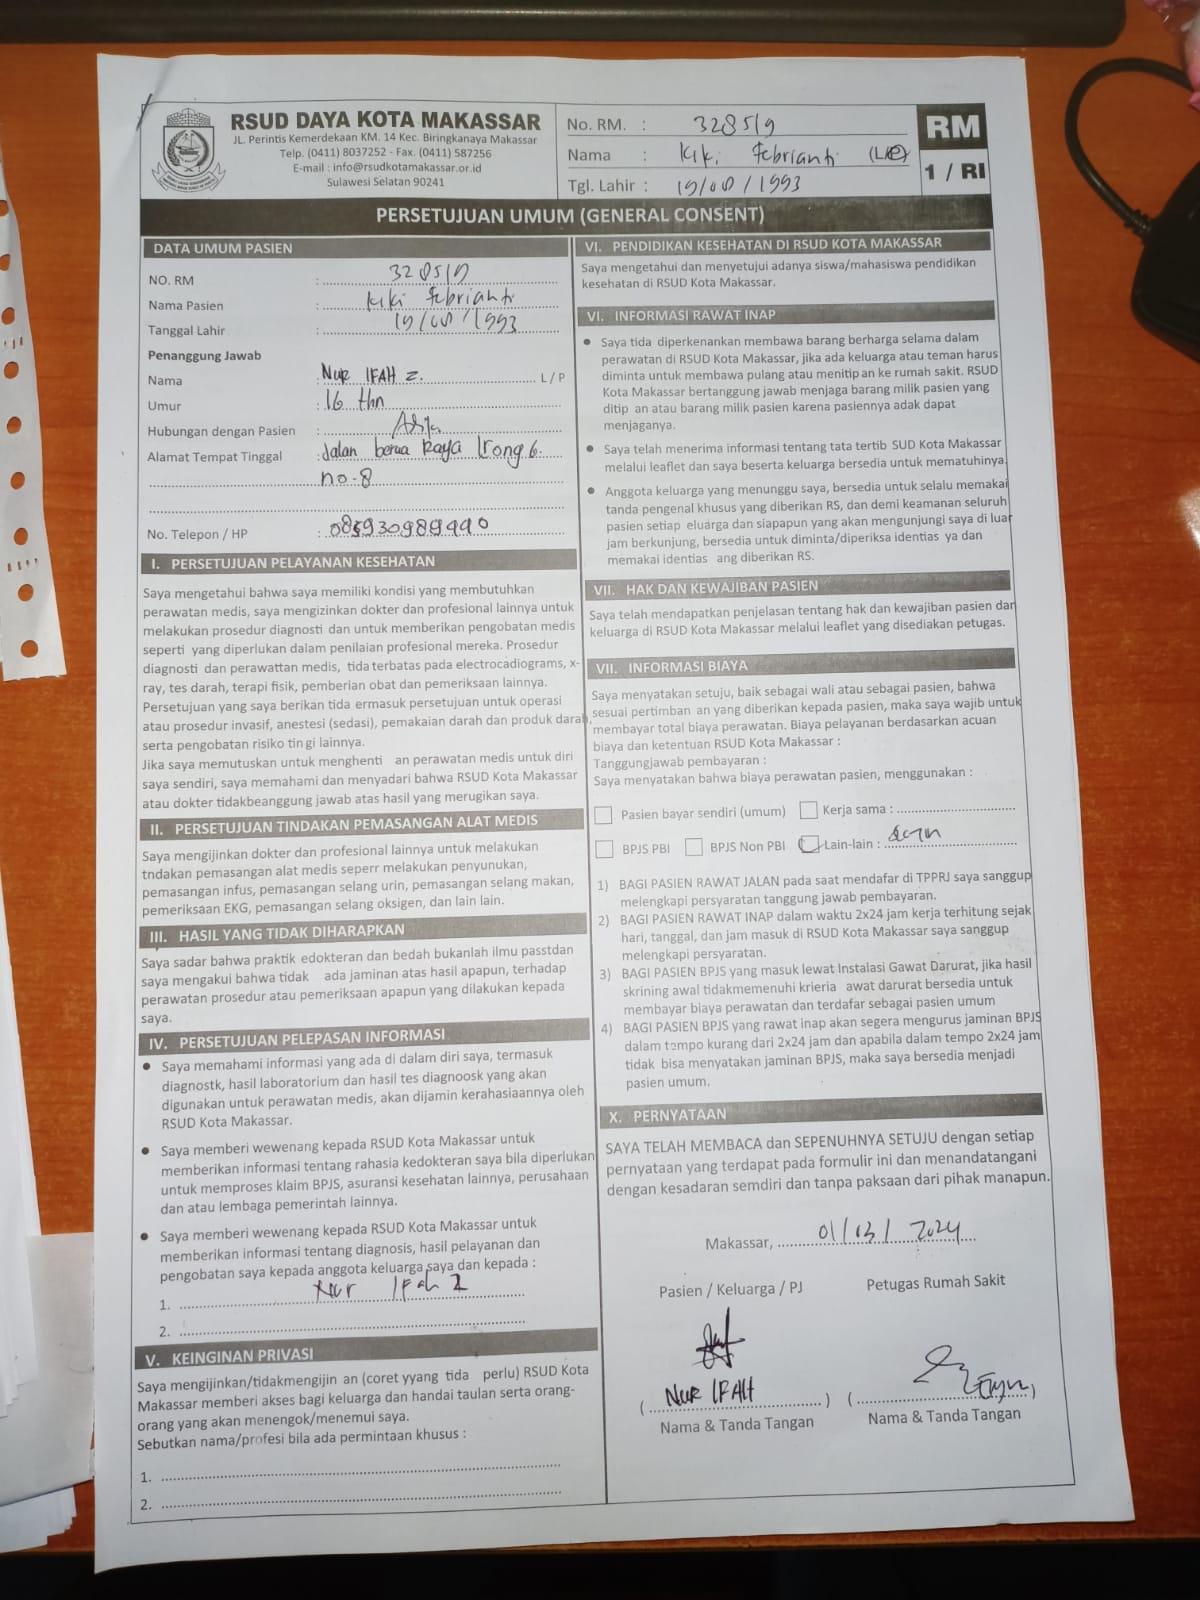 RSUD DAYA KOTA MAKASSAR
JL. Perintis Kemerdekaan KM. 14 Kec. Biringkanaya Makassar
Telp. (0411) 8037252 - Fax. (0411) 587256
E-mail : info@rsudkotamakassar.or.id
Sulawesi Selatan 90241
No. RM. : 328519
Nama : Kiki Febrianti (L/P)
Tgl. Lahir : 19/08/1993
RM
1 / RI
PERSETUJUAN UMUM (GENERAL CONSENT)
DATA UMUM PASIEN
NO. RM : 328519
Nama Pasien : Kiki Febrianti
Tanggal Lahir : 19/08/1993
Penanggung Jawab
Nama : Nur IFAH Z. L / P
Umur : 16 thn
Hubungan dengan Pasien :
Alamat Tempat Tinggal : Jalan berua Raya lrong 6.
no-8
No. Telepon / HP : 085930989990
I. PERSETUJUAN PELAYANAN KESEHATAN
Saya mengetahui bahwa saya memiliki kondisi yang membutuhkan
perawatan medis, saya mengizinkan dokter dan profesional lainnya untuk
melakukan prosedur diagnosti dan untuk memberikan pengobatan medis
seperti yang diperlukan dalam penilaian profesional mereka. Prosedur
diagnosti dan perawattan medis, tida terbatas pada electrocadiograms, x-
ray, tes darah, terapi fisik, pemberian obat dan pemeriksaan lainnya.
Persetujuan yang saya berikan tida ermasuk persetujuan untuk operasi
atau prosedur invasif, anestesi (sedasi), pemakaian darah dan produk darah,
serta pengobatan risiko tingi lainnya.
Jika saya memutuskan untuk menghenti an perawatan medis untuk diri
saya sendiri, saya memahami dan menyadari bahwa RSUD Kota Makassar
atau dokter tidakbeanggung jawab atas hasil yang merugikan saya.
II. PERSETUJUAN TINDAKAN PEMASANGAN ALAT MEDIS
Saya mengijinkan dokter dan profesional lainnya untuk melakukan
tndakan pemasangan alat medis seperr melakukan penyunukan,
pemasangan infus, pemasangan selang urin, pemasangan selang makan,
pemeriksaan EKG, pemasangan selang oksigen, dan lain lain.
III. HASIL YANG TIDAK DIHARAPKAN
Saya sadar bahwa praktik edokteran dan bedah bukanlah ilmu passtdan
saya mengakui bahwa tidak ada jaminan atas hasil apapun, terhadap
perawatan prosedur atau pemeriksaan apapun yang dilakukan kepada
saya.
IV. PERSETUJUAN PELEPASAN INFORMASI
● Saya memahami informasi yang ada di dalam diri saya, termasuk
diagnostk, hasil laboratorium dan hasil tes diagnoosk yang akan
digunakan untuk perawatan medis, akan dijamin kerahasiaannya oleh
RSUD Kota Makassar.
● Saya memberi wewenang kepada RSUD Kota Makassar untuk
memberikan informasi tentang rahasia kedokteran saya bila diperlukan
untuk memproses klaim BPJS, asuransi kesehatan lainnya, perusahaan
dan atau lembaga pemerintah lainnya.
● Saya memberi wewenang kepada RSUD Kota Makassar untuk
memberikan informasi tentang diagnosis, hasil pelayanan dan
pengobatan saya kepada anggota keluarga saya dan kepada :
1. Nur IFah Z
2.
V. KEINGINAN PRIVASI
Saya mengijinkan/tidakmengijin an (coret yyang tida perlu) RSUD Kota
Makassar memberi akses bagi keluarga dan handai taulan serta orang-
orang yang akan menengok/menemui saya.
Sebutkan nama/profesi bila ada permintaan khusus :
1.
2.
VI. PENDIDIKAN KESEHATAN DI RSUD KOTA MAKASSAR
Saya mengetahui dan menyetujui adanya siswa/mahasiswa pendidikan
kesehatan di RSUD Kota Makassar.
VI. INFORMASI RAWAT INAP
● Saya tida diperkenankan membawa barang berharga selama dalam
perawatan di RSUD Kota Makassar, jika ada keluarga atau teman harus
diminta untuk membawa pulang atau menitip an ke rumah sakit. RSUD
Kota Makassar bertanggung jawab menjaga barang milik pasien yang
ditip an atau barang milik pasien karena pasiennya adak dapat
menjaganya.
● Saya telah menerima informasi tentang tata tertib SUD Kota Makassar
melalui leaflet dan saya beserta keluarga bersedia untuk mematuhinya.
● Anggota keluarga yang menunggu saya, bersedia untuk selalu memakai
tanda pengenal khusus yang diberikan RS, dan demi keamanan seluruh
pasien setiap eluarga dan siapapun yang akan mengunjungi saya di luar
jam berkunjung, bersedia untuk diminta/diperiksa identias ya dan
memakai identias ang diberikan RS.
VII. HAK DAN KEWAJIBAN PASIEN
Saya telah mendapatkan penjelasan tentang hak dan kewajiban pasien dan
keluarga di RSUD Kota Makassar melalui leaflet yang disediakan petugas.
VII. INFORMASI BIAYA
Saya menyatakan setuju, baik sebagai wali atau sebagai pasien, bahwa
sesuai pertimban an yang diberikan kepada pasien, maka saya wajib untuk
membayar total biaya perawatan. Biaya pelayanan berdasarkan acuan
biaya dan ketentuan RSUD Kota Makassar :
Tanggungjawab pembayaran :
Saya menyatakan bahwa biaya perawatan pasien, menggunakan :
Pasien bayar sendiri (umum) Kerja sama :
BPJS PBI BPJS Non PBI Lain-lain :
1) BAGI PASIEN RAWAT JALAN pada saat mendafar di TPPRJ saya sanggup
melengkapi persyaratan tanggung jawab pembayaran.
2) BAGI PASIEN RAWAT INAP dalam waktu 2x24 jam kerja terhitung sejak
hari, tanggal, dan jam masuk di RSUD Kota Makassar saya sanggup
melengkapi persyaratan.
3) BAGI PASIEN BPJS yang masuk lewat Instalasi Gawat Darurat, jika hasil
skrining awal tidakmemenuhi krieria awat darurat bersedia untuk
membayar biaya perawatan dan terdafar sebagai pasien umum
4) BAGI PASIEN BPJS yang rawat inap akan segera mengurus jaminan BPJS
dalam tempo kurang dari 2x24 jam dan apabila dalam tempo 2x24 jam
tidak bisa menyatakan jaminan BPJS, maka saya bersedia menjadi
pasien umum.
X. PERNYATAAN
SAYA TELAH MEMBACA dan SEPENUHNYA SETUJU dengan setiap
pernyataan yang terdapat pada formulir ini dan menandatangani
dengan kesadaran semdiri dan tanpa paksaan dari pihak manapun.
Makassar, 01/03/2024
Pasien / Keluarga / PJ Petugas Rumah Sakit
( NUR IFAH ) ( )
Nama & Tanda Tangan Nama & Tanda Tangan